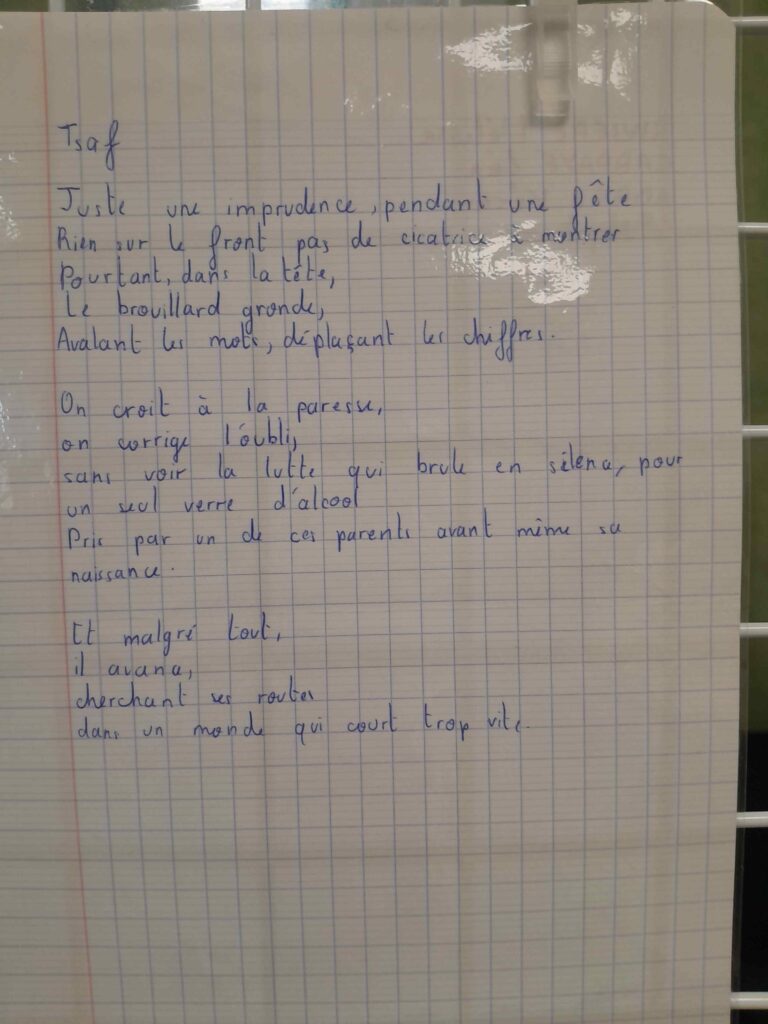 Tsaf
Juste une imprudence, pendant une fête
Rien sur le front pas de cicatrice à montrer
Pourtant, dans la tête,
Le brouillard gronde,
Avalant les mots, déplaçant les chiffres.
On croit à la paresse,
on corrige l'oubli,
sans voir la lutte qui brule en silena, pour
un seul verre d'alcool
Pris par un de ces parents avant même sa
naissance.
Et malgré tout,
il avana,
cherchant ses routes
dans un monde qui court trop vite.